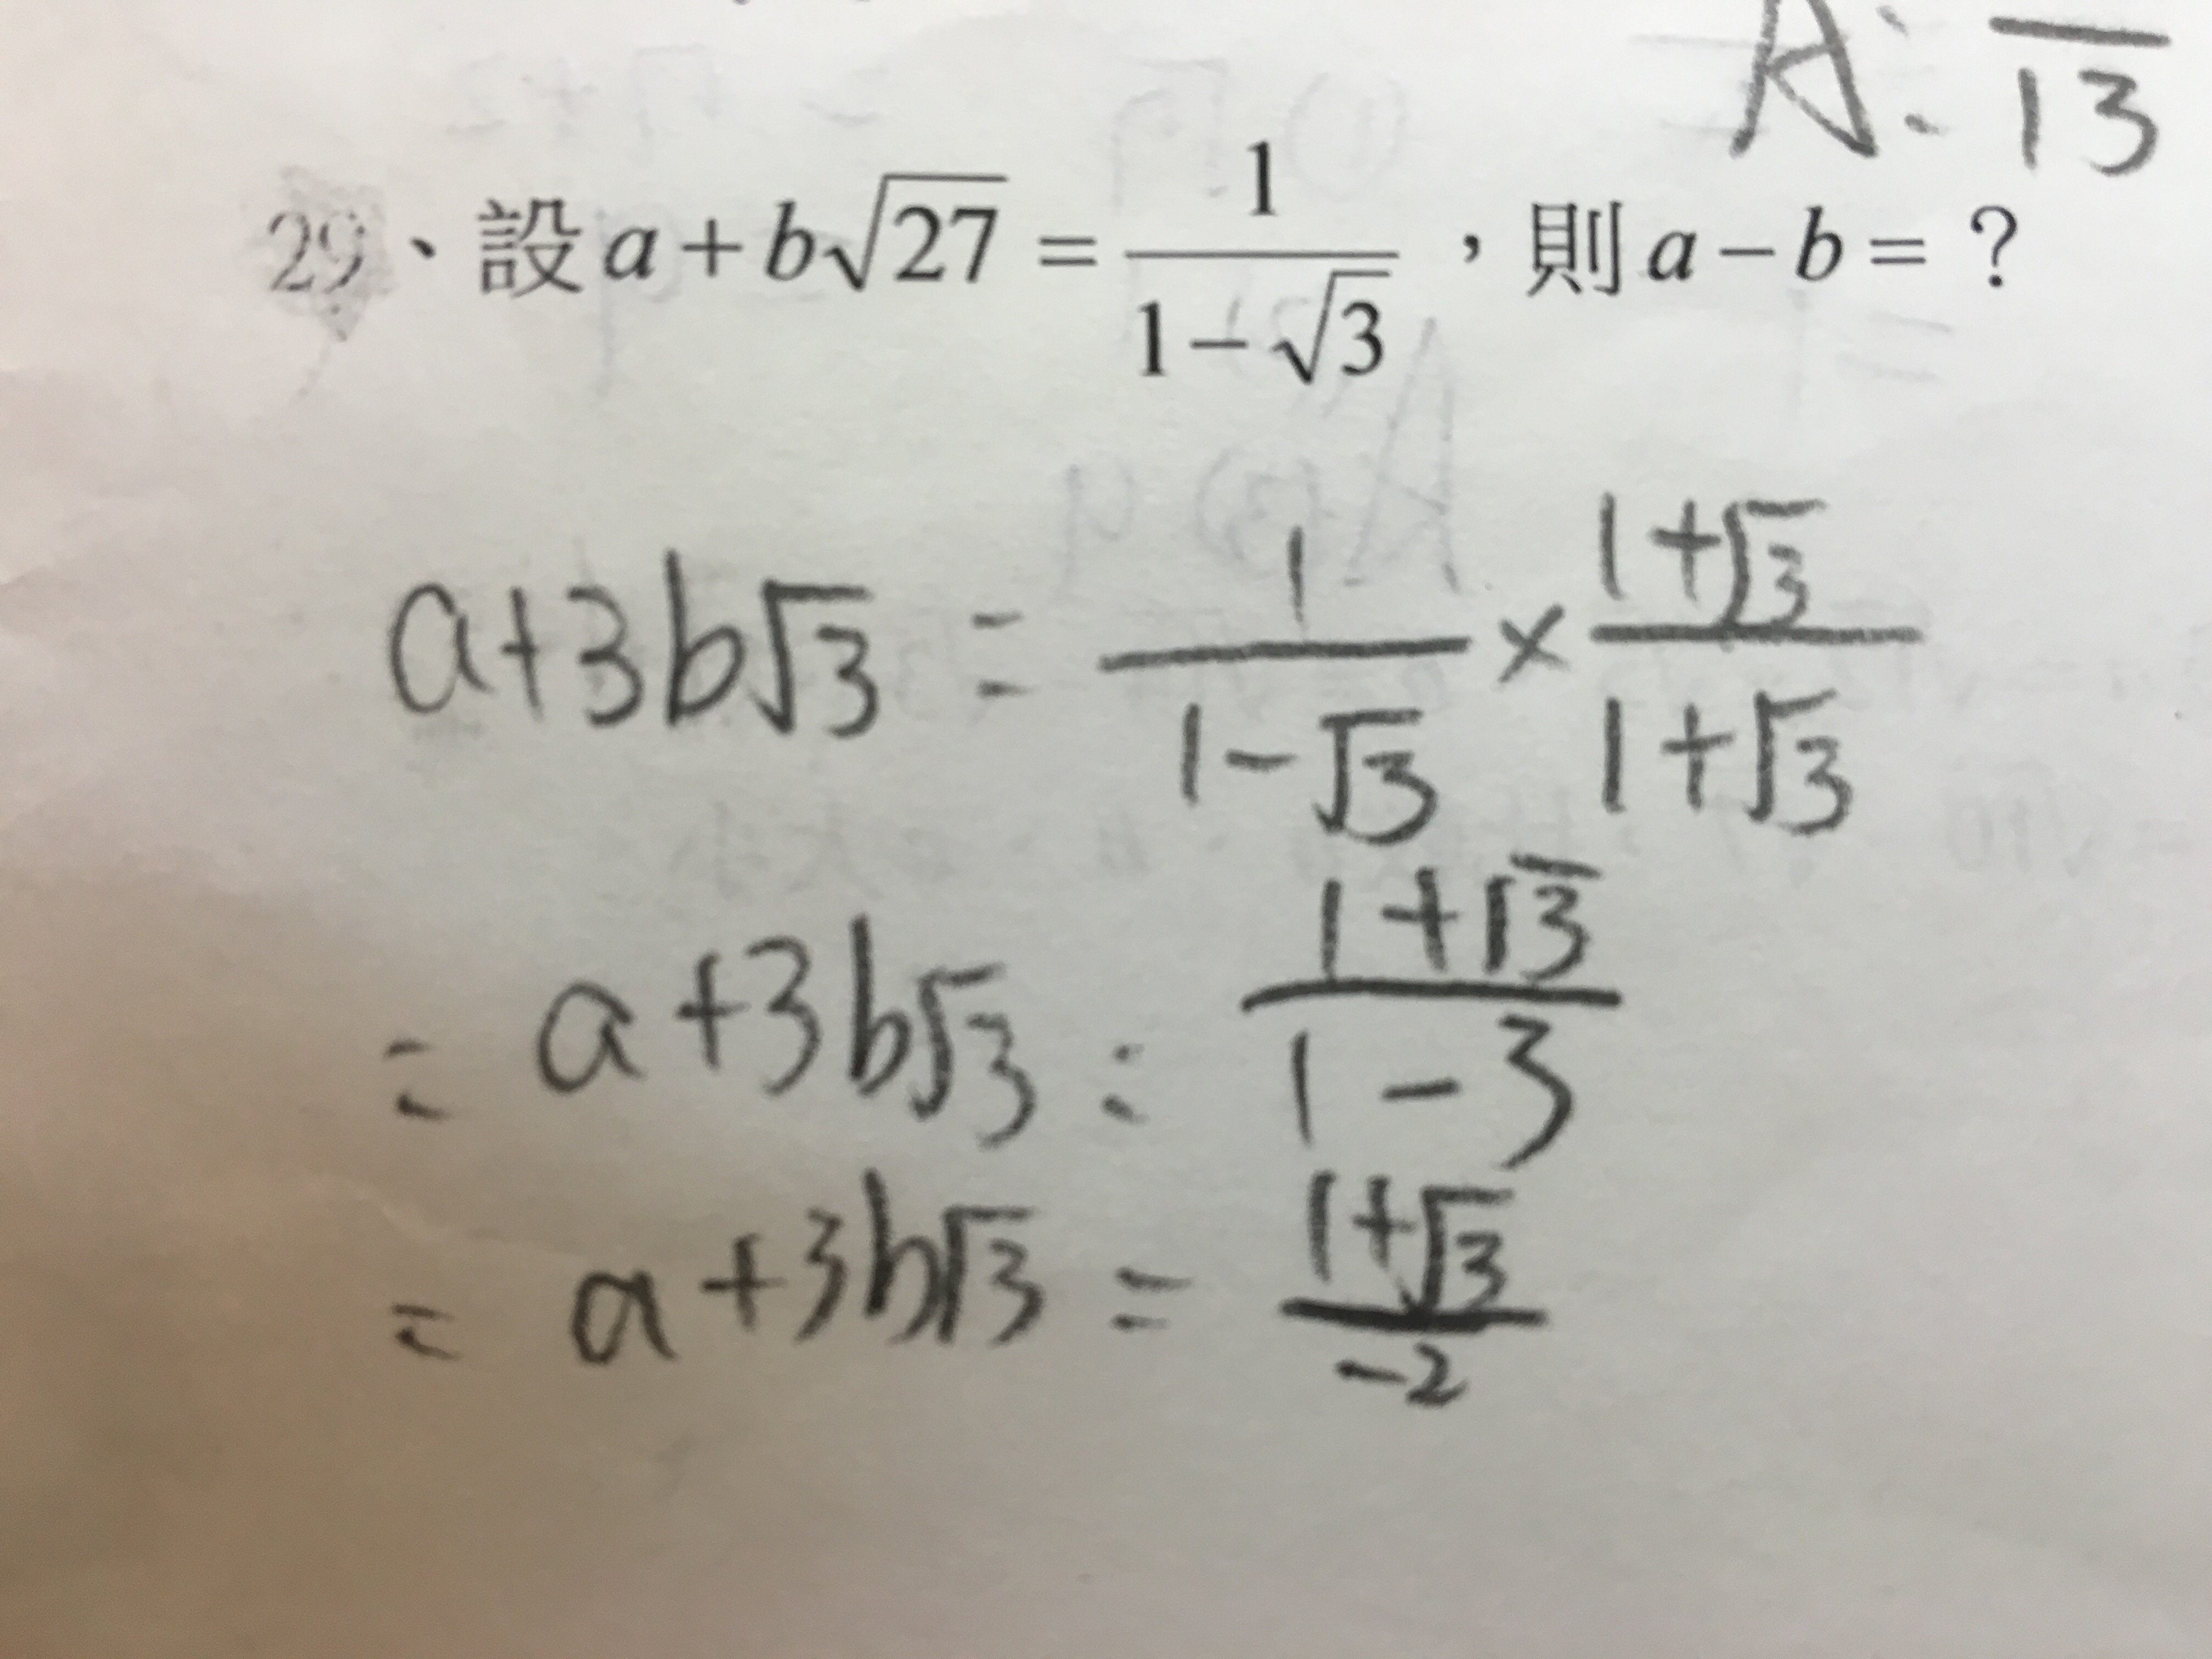 A: —/13
29、設 a + b√27 = 1/(1−√3)，則 a − b = ？
a+3b√3 = 1/(1−√3) × (1+√3)/(1+√3)
= a+3b√3 = (1+√3)/(1−3)
= a+3b√3 = (1+√3)/−2